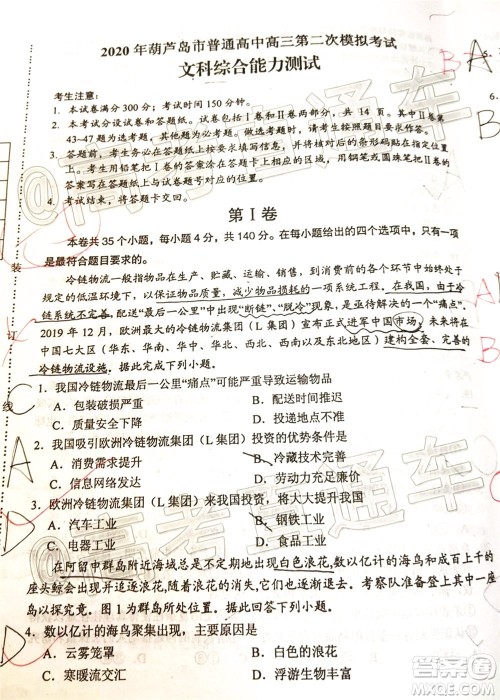 2020年葫芦岛市普通高中高三第二次模拟考试
文科综合能力测试
考生注意：
1. 本试卷满分300分；考试时间150分钟。
2. 本考试分设试卷和答题纸。试卷包括Ⅰ卷和Ⅱ卷两部分，共14页。其中
43-47题为选考题，其他题为必考题。做选考题时，考生须按照题目要求作答。
3. 答题前，考生务必在答题纸上
Ⅰ卷
答题纸上
4. 考试结束，
第Ⅰ卷
本卷共35个小题，每小题4分，共140分。在每小题给出的四个选项中，只有一项
是最符合题目要求的。
冷链物流一般指商品在生产、贮藏、运输、销售，到消费前的各个环节中始终处于规
定的低温环境下，以保证物品质量，减少物品损耗的一项系统工程。在我国，由于冷
链系统不完善，导致配送中出现“断链”、“脱冷”现象，是亟待解决的一个“痛点”。
2019年12月，欧洲最大的冷链物流集团（L集团）宣布正式进军中国市场，未来将在
中国七大区（华东、华南、华中、华北、西北、西南以及东北地区）建构全套、完善的
冷链物流设施。据此完成下列小题。
1. 我国冷链物流最后一公里“痛点”可能严重导致运输物品
A．包装破损严重
B．配送时间增加
C．质量安全下降
D．货物大量丢失
2. 我国吸引欧洲冷链物流集团（L集团）投资的优势条件是
A．消费需求提升
B．冷藏技术完善
C．信息网络发达
D．劳动力充足
3. 欧洲冷链物流集团（L集团）来我国投资，将大大提升我国
A．汽车工业
B．钢铁工业
C．电器工业
D．食品工业
在阿留申群岛附近海域总是不定期地出现白色浪花，数以亿计的海鸟和成百上千的
座头鲸会出现并追逐着浪花，海鸟的叫声
随着浪花的消失
考察队准备登上其中一
岛以探究竟。图1为群岛示意图。据此完成下列小题。
4. 数以亿计的海鸟聚集出现，主要原因是
A．云雾笼罩
B．白色的浪花
C．寒暖流交汇
D．浮游生物丰富
装
订
线